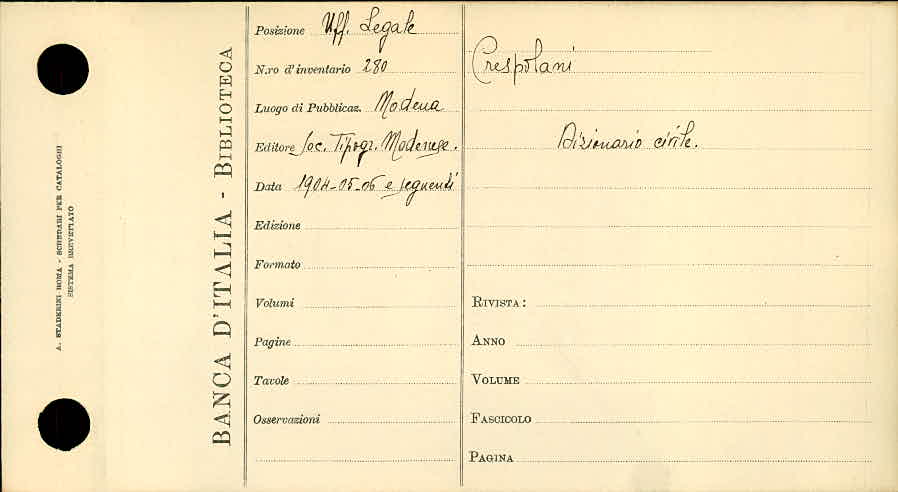 A. STADERINI ROMA - SCHEDARI PER CATALOGHI
SISTEMA BREVETTATO
BANCA D'ITALIA - BIBLIOTECA
Posizione Uff. Legale
N.ro d'inventario 280
Luogo di Pubblicaz. Modena
Editore Soc. Tipogr. Modenese.
Data 1904-05-06 e seguenti
Edizione
Formato
Volumi
Pagine
Tavole
Osservazioni
Crespolani
Dizionario civile.
RIVISTA:
ANNO
VOLUME
FASCICOLO
PAGINA